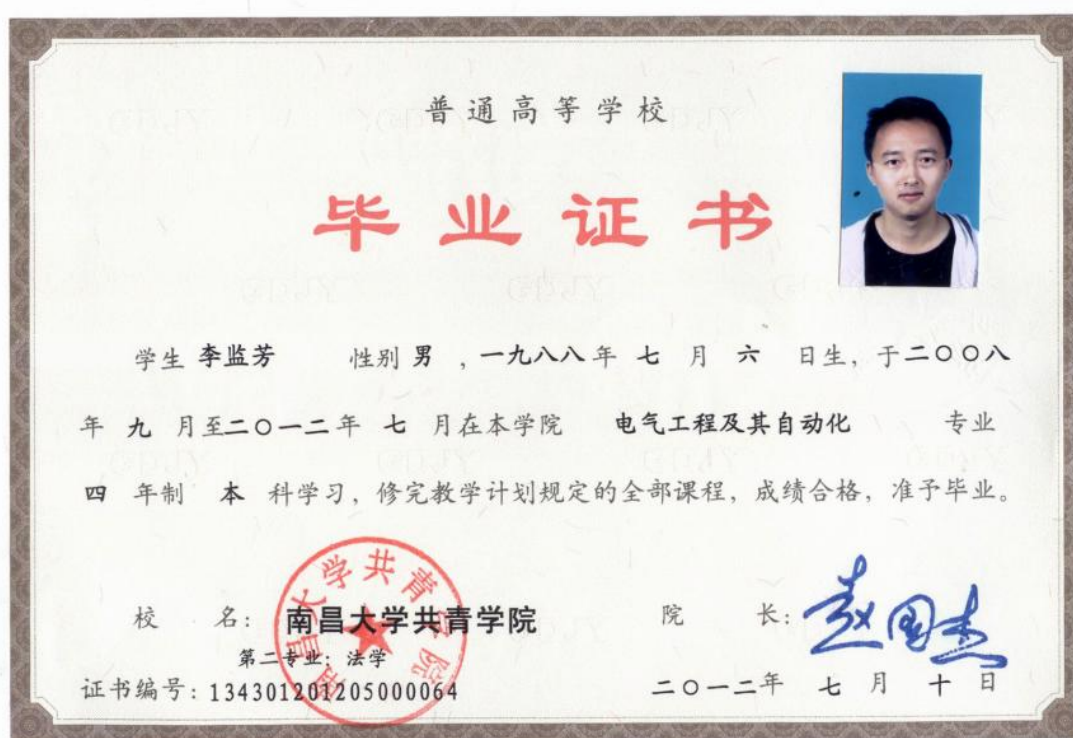 普通高等学校
毕业证书
学生 李监芳 性别 男 ，一九八八年 七 月 六 日生，于二〇〇八
年 九 月至二〇一二年 七 月在本学院 电气工程及其自动化 专业
四 年制 本 科学习，修完教学计划规定的全部课程，成绩合格，准予毕业。
南昌大学共青学院
校 名： 南昌大学共青学院 院 长：赵国杰
第二专业：法学
证书编号：134301201205000064 二〇一二年 七 月 十 日